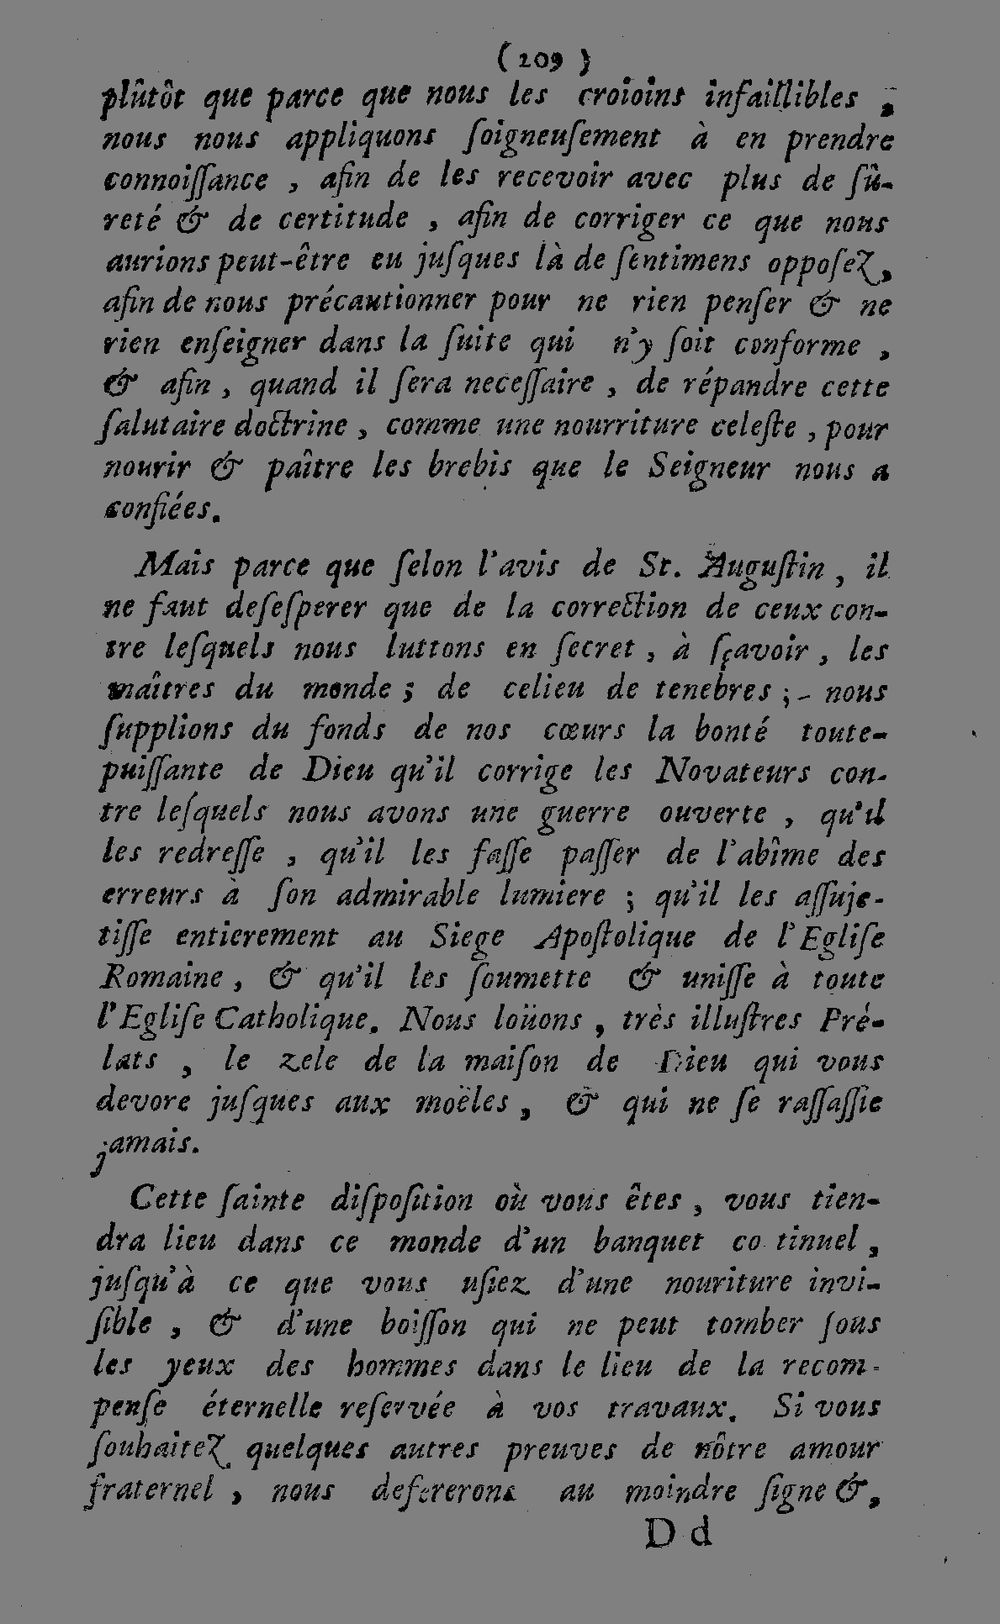 ( 209 )
plûtôt que parce que nous les croioins infaillibles ,
nous nous appliquons ſoigneuſement à en prendre
connoiſſance , afin de les recevoir avec plus de ſû-
reté & de certitude , afin de corriger ce que nous
aurions peut-être eu juſques là de ſentimens oppoſez,
afin de nous précautionner pour ne rien penſer & ne
rien enſeigner dans la ſuite qui n'y ſoit conforme ,
& afin , quand il ſera neceſſaire , de répandre cette
ſalutaire doctrine , comme une nourriture celeſte , pour
nourir & paître les brebis que le Seigneur nous a
confiées.
Mais parce que ſelon l'avis de St. Auguſtin , il
ne faut deſeſperer que de la correction de ceux con-
tre leſquels nous luttons en ſecret , à ſçavoir , les
maîtres du monde ; de celieu de tenebres ; - nous
ſupplions du fonds de nos cœurs la bonté toute-
puiſſante de Dieu qu'il corrige les Novateurs con-
tre leſquels nous avons une guerre ouverte , qu'il
les redreſſe , qu'il les faſſe paſſer de l'abîme des
erreurs à ſon admirable lumiere ; qu'il les aſſuje-
tiſſe entierement au Siege Apoſtolique de l'Egliſe
Romaine , & qu'il les ſoumette & uniſſe à toute
l'Egliſe Catholique. Nous loüons , très illuſtres Pré-
lats , le zele de la maiſon de Dieu qui vous
devore juſques aux moëles , & qui ne ſe raſſaſſie
jamais.
Cette ſainte diſpoſition où vous êtes , vous tien-
dra lieu dans ce monde d'un banquet co tinuel ,
juſqu'à ce que vous uſiez d'une nouriture invi-
ſible , & d'une boiſſon qui ne peut tomber ſous
les yeux des hommes dans le lieu de la recom-
penſe éternelle reſervée à vos travaux. Si vous
ſouhaitez quelques autres preuves de nôtre amour
fraternel , nous defererons au moindre ſigne & ,
D d